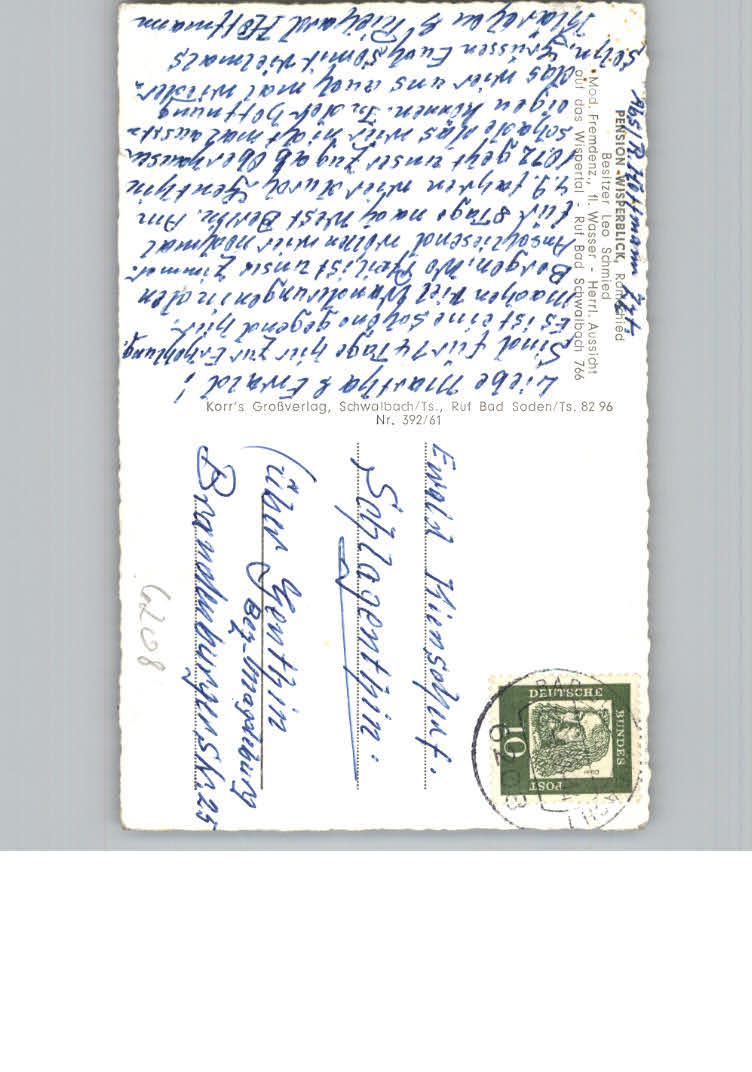 Abs/R. Hoffmann Zzt
PENSION WISPERBLICK, Ramschied
Besitzer Leo Schmied
Mod. Fremdenz., fl. Wasser - Herrl. Aussicht
auf das Wispertal - Ruf Bad Schwalbach 766
Liebe Martha & Ewald!
Sind für 14 Tage hier zur Erhohlung.
Es ist eine schöne gegend hier.
machen viel Wanderungen in den
Bergen, wo Pfeil ist unser Zimmer.
Anschliesend wollen wir nochmal
für 8 Tage nach West Berlin. Am
4.9. fahren wier durch Genthin
10.22 geht unser Zug ab Oberhausen
schade das wir nicht mal ausst-
eigen können. In der hoffnung
das wier uns auch mal wieder
sehn, Grüssen Euch somit vielmals
Klärchen & Richard Hoffmann
Korr's Großverlag, Schwalbach/Ts., Ruf Bad Soden/Ts. 82 96
Nr. 392/61
Ewald Kiensdorf.
Schlagenthin.
(über Genthin
Bez-Magdeburg
Brandenburgerstr. 25
DEUTSCHE
BUNDES
POST
10
6208